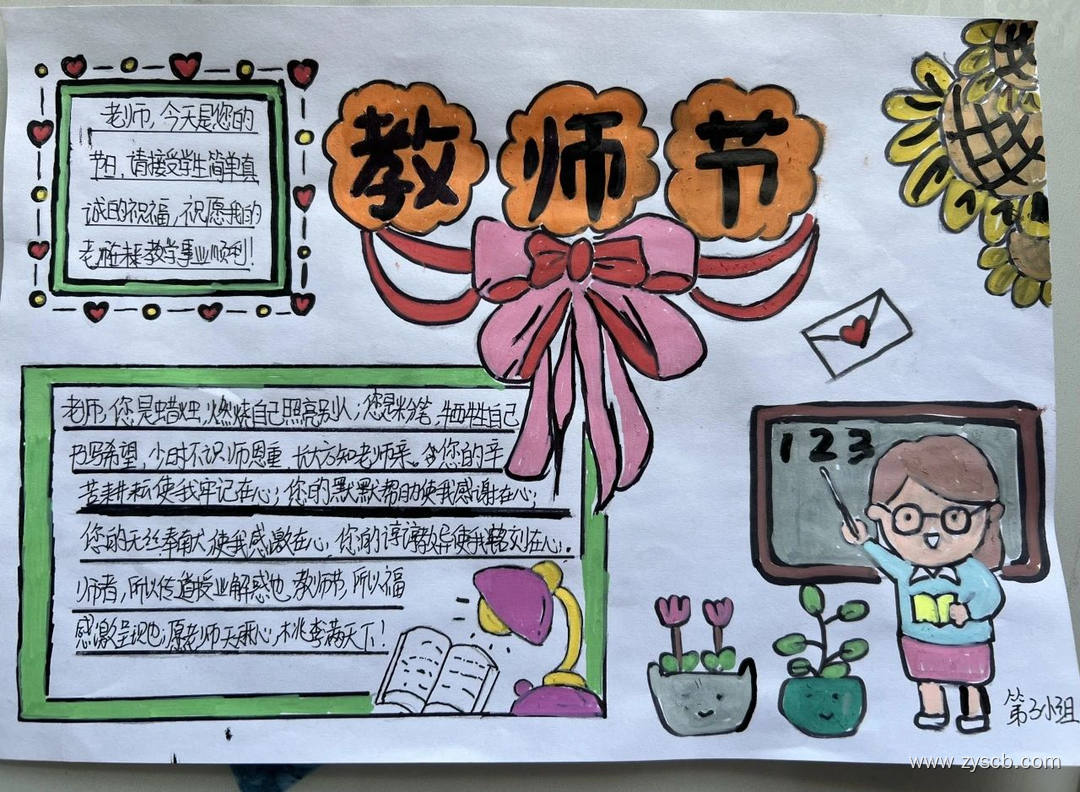 教师节
老师,今天是您的
节日,请接受学生简单真
诚的祝福,祝愿我的
老师 教学事业顺利!
老师,您是蜡烛,燃烧自己照亮别人;您是粉笔,牺牲自己
书写希望,少时不识师恩重,长大方知老师亲。 您的辛
苦耕耘使我牢记在心;您的默默帮助使我感谢在心;
您的无丝奉献使我感激在心,您的谆谆教导使我 刻在心。
师者,所以传道授业解惑也,教师节,所以福
感激呈现也;愿老师天天 心,桃李满天下!
123
第3小组
www.zyscb.com